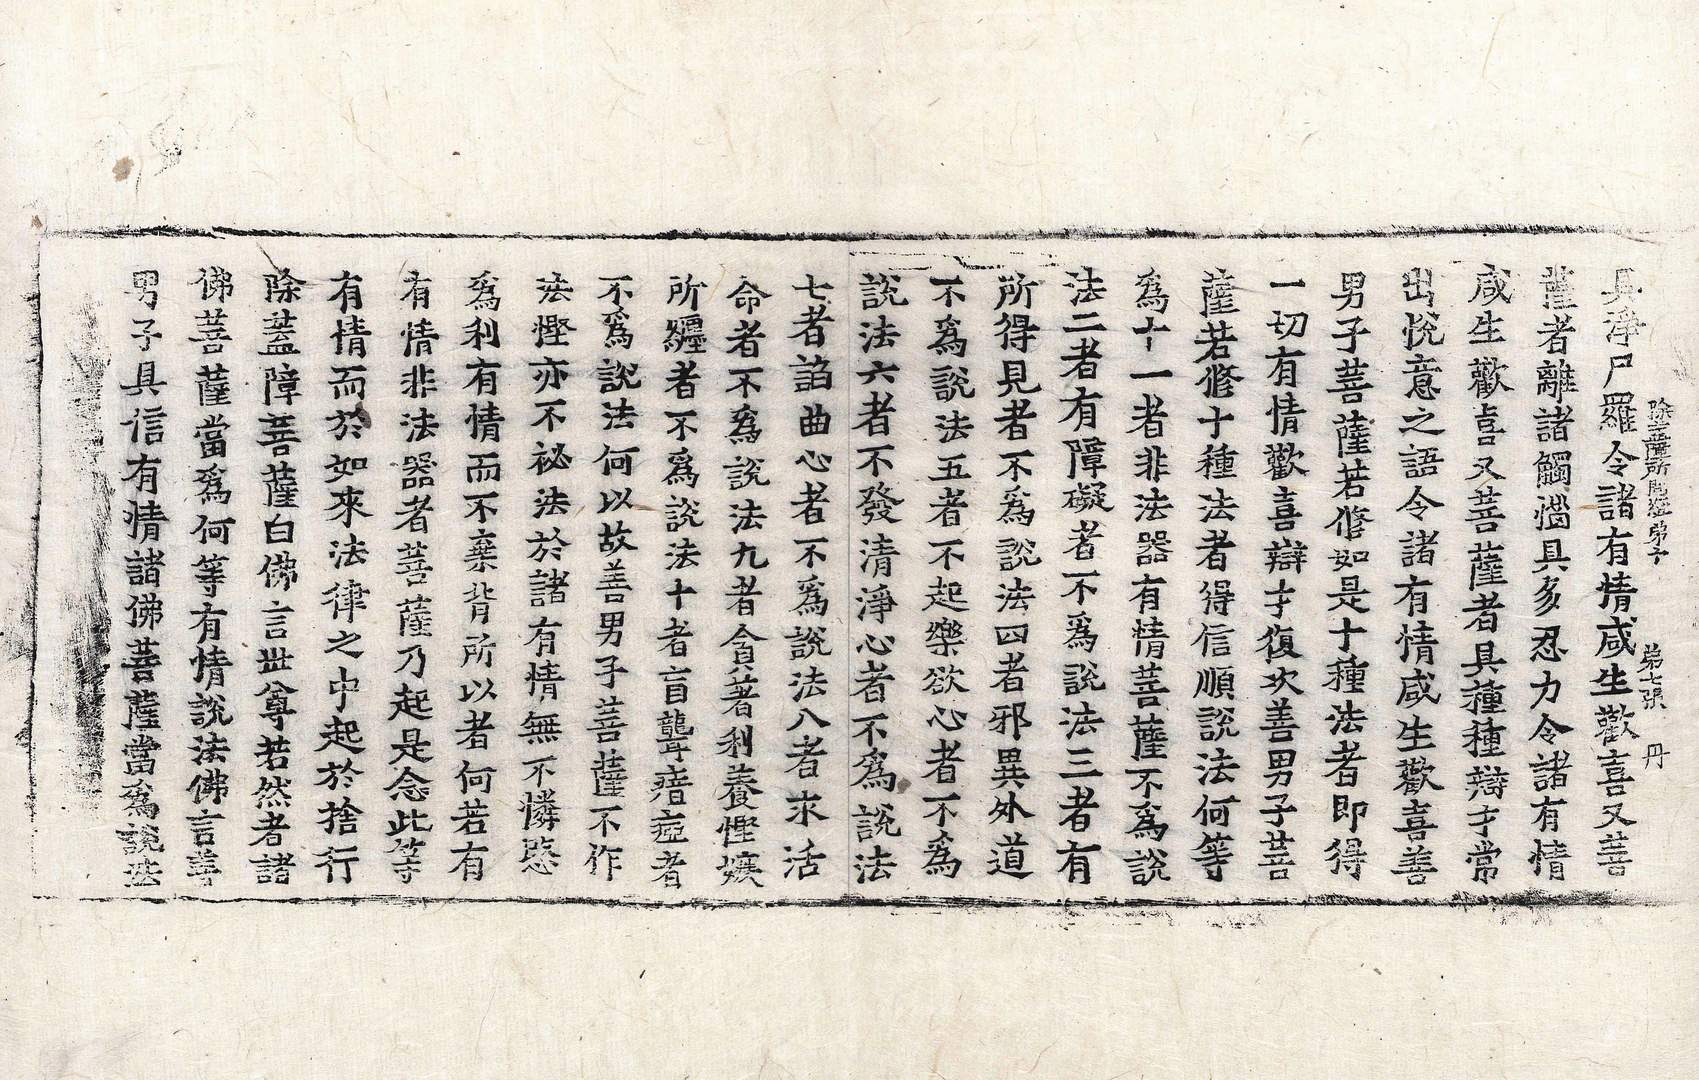 除蓋障所問經第
第七張
丹
具淨尸羅令諸有情咸生歡喜又菩
薩者離諸觸惱具多忍力令諸有情
咸生歡喜又菩薩者具種種辯才常
出悅意之語令諸有情咸生歡喜善
男子菩薩若修如是十種法者即得
一切有情歡喜辯才復次善男子菩
薩若修十種法者得信順說法何等
爲十一者非法器有情菩薩不爲說
法二者有障礙者不爲說法三者有
所得見者不爲說法四者邪異外道
不爲說法五者不起樂欲心者不爲
說法六者不發清淨心者不爲說法
七者諂曲心者不爲說法八者求活
命者不爲說法九者貪著利養慳嫉
所纏者不爲說法十者盲聾瘖瘂者
不爲說法何以故善男子菩薩不作
法慳亦不祕法於諸有情無不憐愍
爲利有情而不棄背所以者何若有
有情非法器者菩薩乃起是念此等
有情而於如來法律之中起於捨行
除蓋障菩薩白佛言世尊若然者諸
佛菩薩當爲何等有情說法佛言善
男子具信有情諸佛菩薩當爲說法